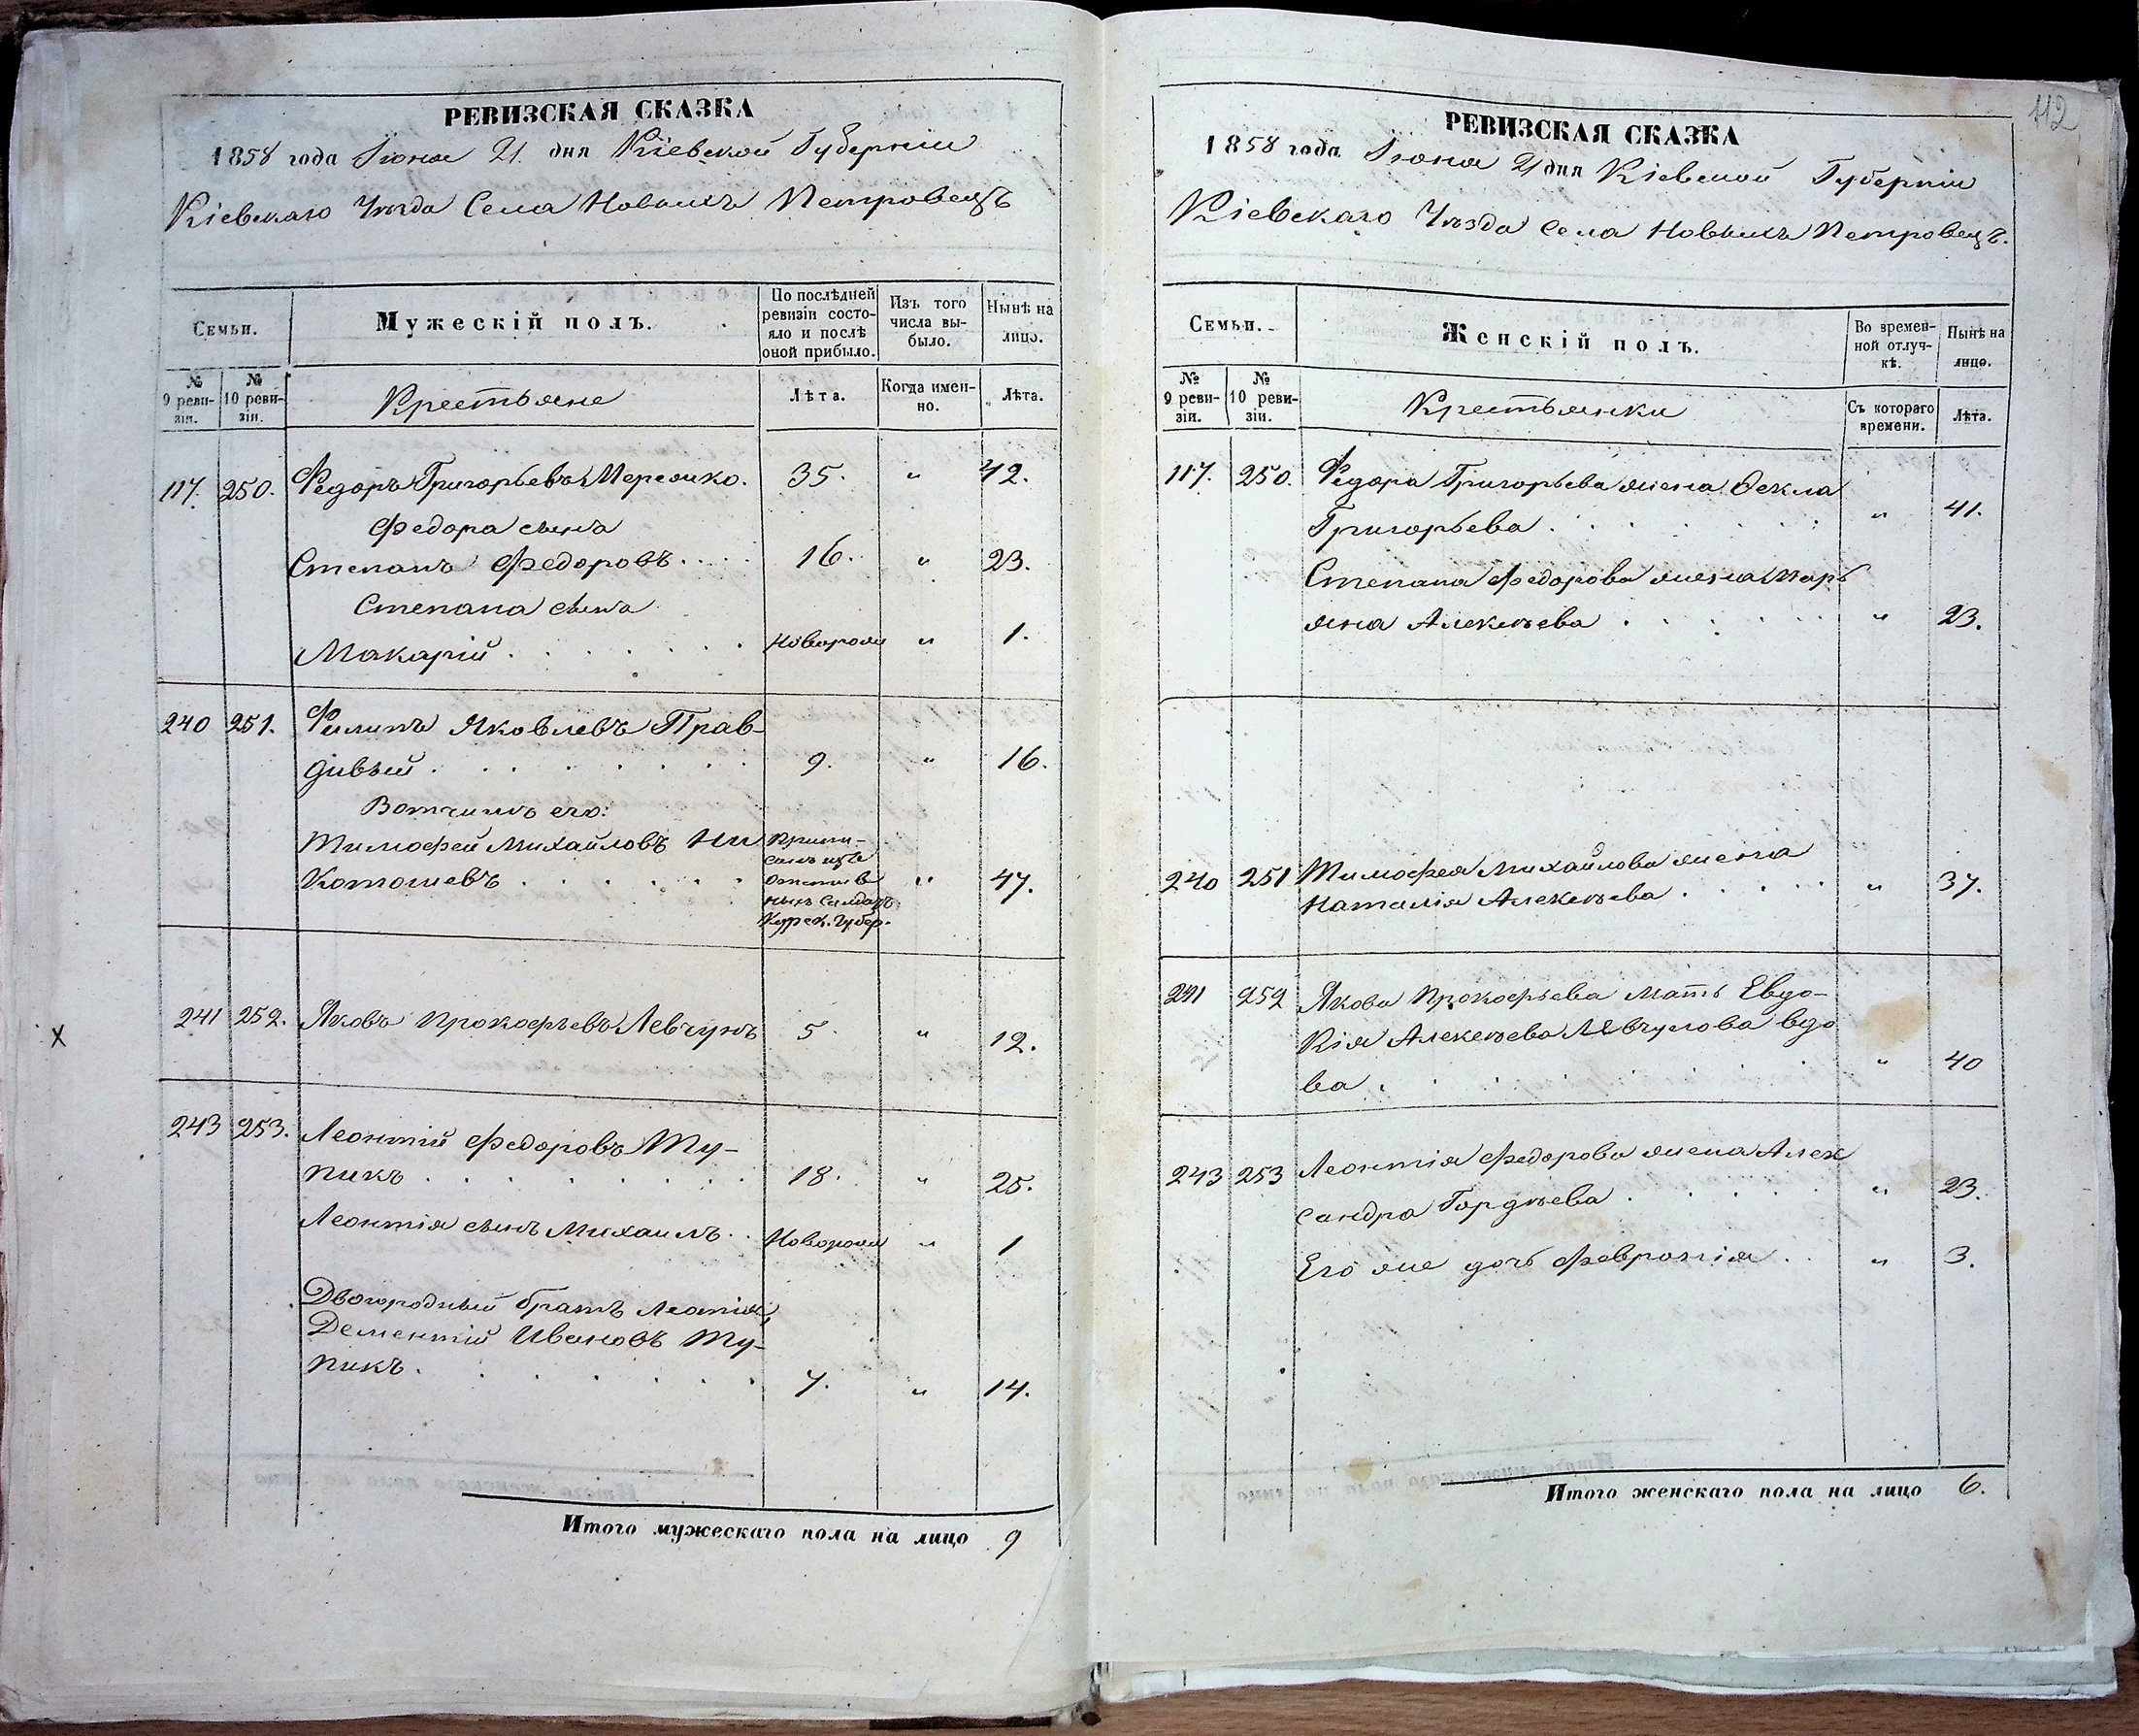 РЕВИЗСКАЯ СКАЗКА
1858 года Іюня 21 дня Кіевской Губерніи
Кіевскаго Уѣзда Села Новыхъ Петровецъ
Семьи.
Мужескій полъ.
По послѣдней ревизіи состояло и послѣ оной прибыло.
Изъ того числа выбыло.
Нынѣ на лицо.
№ 9 ревизіи.
№ 10 ревизіи.
Крестьяне
Лѣта.
Когда именно.
Лѣта.
117. 250. Федоръ Григорьевъ 35. „ 42.
Федора сынъ
Степанъ Федоровъ. . . . . 16. „ 23.
Степана сынъ
Макарій . . . . . . .Новорож „ 1.
240 251. Филипъ Яковлевъ Прав-
дивый . . . . . . . 9. „ 16.
Вотчимъ его:
Тимофей Михайловъ Ни Припи-
санъ изъ
Котошевъ . . . . . . отстав „ 47.
ныхъ Салдатъ
Курск. Губер.
241 252. Яковъ Прокофьевъ Левчунъ 5. „ 12.
х
243 253. Леонтій Федоровъ Ту-
пикъ . . . . . . . 18. „ 25.
Леонтія сынъ Михаилъ. . Новорож „ 1
Двоюродный братъ Леонтія
Дементій Ивановъ Ту-
пикъ. . . . . . . 7. „ 14.
Итого мужескаго пола на лицо 9
112
РЕВИЗСКАЯ СКАЗКА
1858 года Іюня 21 дня Кіевской Губерніи
Кіевскаго Уѣзда Села Новыхъ Петровецъ.
Семьи.
Женскій полъ.
Во временной отлучкѣ.
Нынѣ на лицо.
№ 9 ревизіи.
№ 10 ревизіи.
Крестьянки
Съ котораго времени.
Лѣта.
117. 250. Федора Григорьева жена Фекла
Григорьева . . . . . . . „ 41.
Степана Федорова жена Марь
яна Алексѣева . . . . . . „ 23.
240 251 Тимофея Михайлова жена
Наталія Алексѣева . . . . . „ 37.
241 252 Якова Прокофьева мать Евдо-
кія Алексѣева Левчунова вдо
ва . . . . . . . „ 40
243 253 Леонтія Федорова жена Алек
сандра Гордѣева . . . . . „ 23.
Его же дочь Февронія . . „ 3.
Итого женскаго пола на лицо 6.